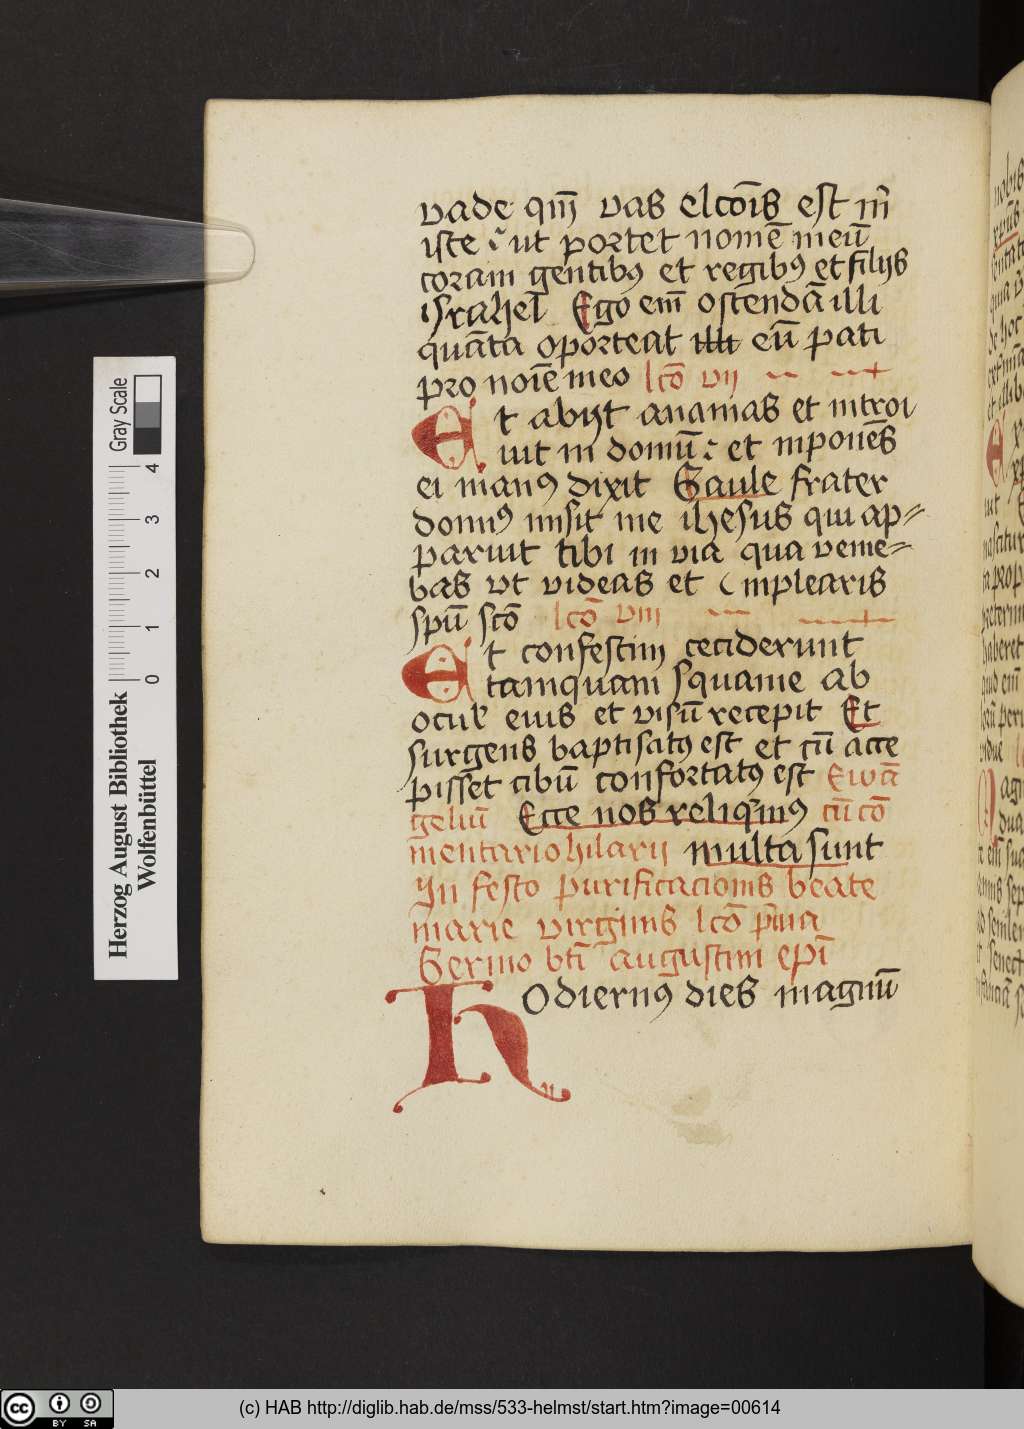 vade qm̄ vas elcōis est m̄
iste : ut portet nomē meū
coram gentibꝯ et regibꝯ et filijs
israhel Ego em̄ ostendā illi
quāta oporteat illi eū pati
pro noīe meo lcō vij
Et abijt ananias et introi
uit in domū : et inponēs
ei manꝯ dixit Saule frater
domnꝯ misit me ihesus qui ap⸗
paruit tibi in via qua venie⸗
bas vt videas et implearis
spū scō lcō viij
Et confestim ceciderunt
tamquam squame ab
ocul' eius et visū recepit Et
surgens baptisatꝯ est et cū acce
pisset cibū confortatꝯ est Ewā
geliū Ecce nos reliqimꝯ cū cō
mentario hilarij multa sunt
In festo purificacionis beate
marie virginis lcō pima
Sermo bti augustini epī
Hodiernꝯ dies magnū
Herzog August Bibliothek
Wolfenbüttel
Gray Scale
0 1 2 3 4
cc BY SA
(c) HAB http://diglib.hab.de/mss/533-helmst/start.htm?image=00614